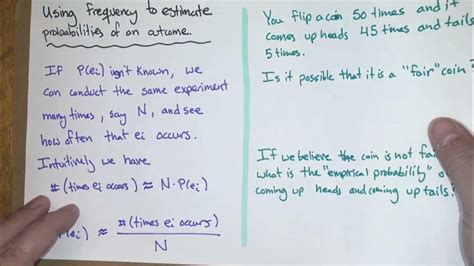 Using frequency to estimate
probabilities of an outcome.
If P(ei) isn't known, we
can conduct the same experiment
many times, say N, and see
how often that ei occurs.
Intuitively we have
#(times ei occurs) ≈ N·P(ei)
(ei) ≈ #(times ei occurs)
N
You flip a coin 50 times and it
comes up heads 45 times and tails
5 times.
Is it possible that it is a "fair" coin?
If we believe the coin is not fair
what is the "emptirical probability" o
coming up heads and coming up tails?